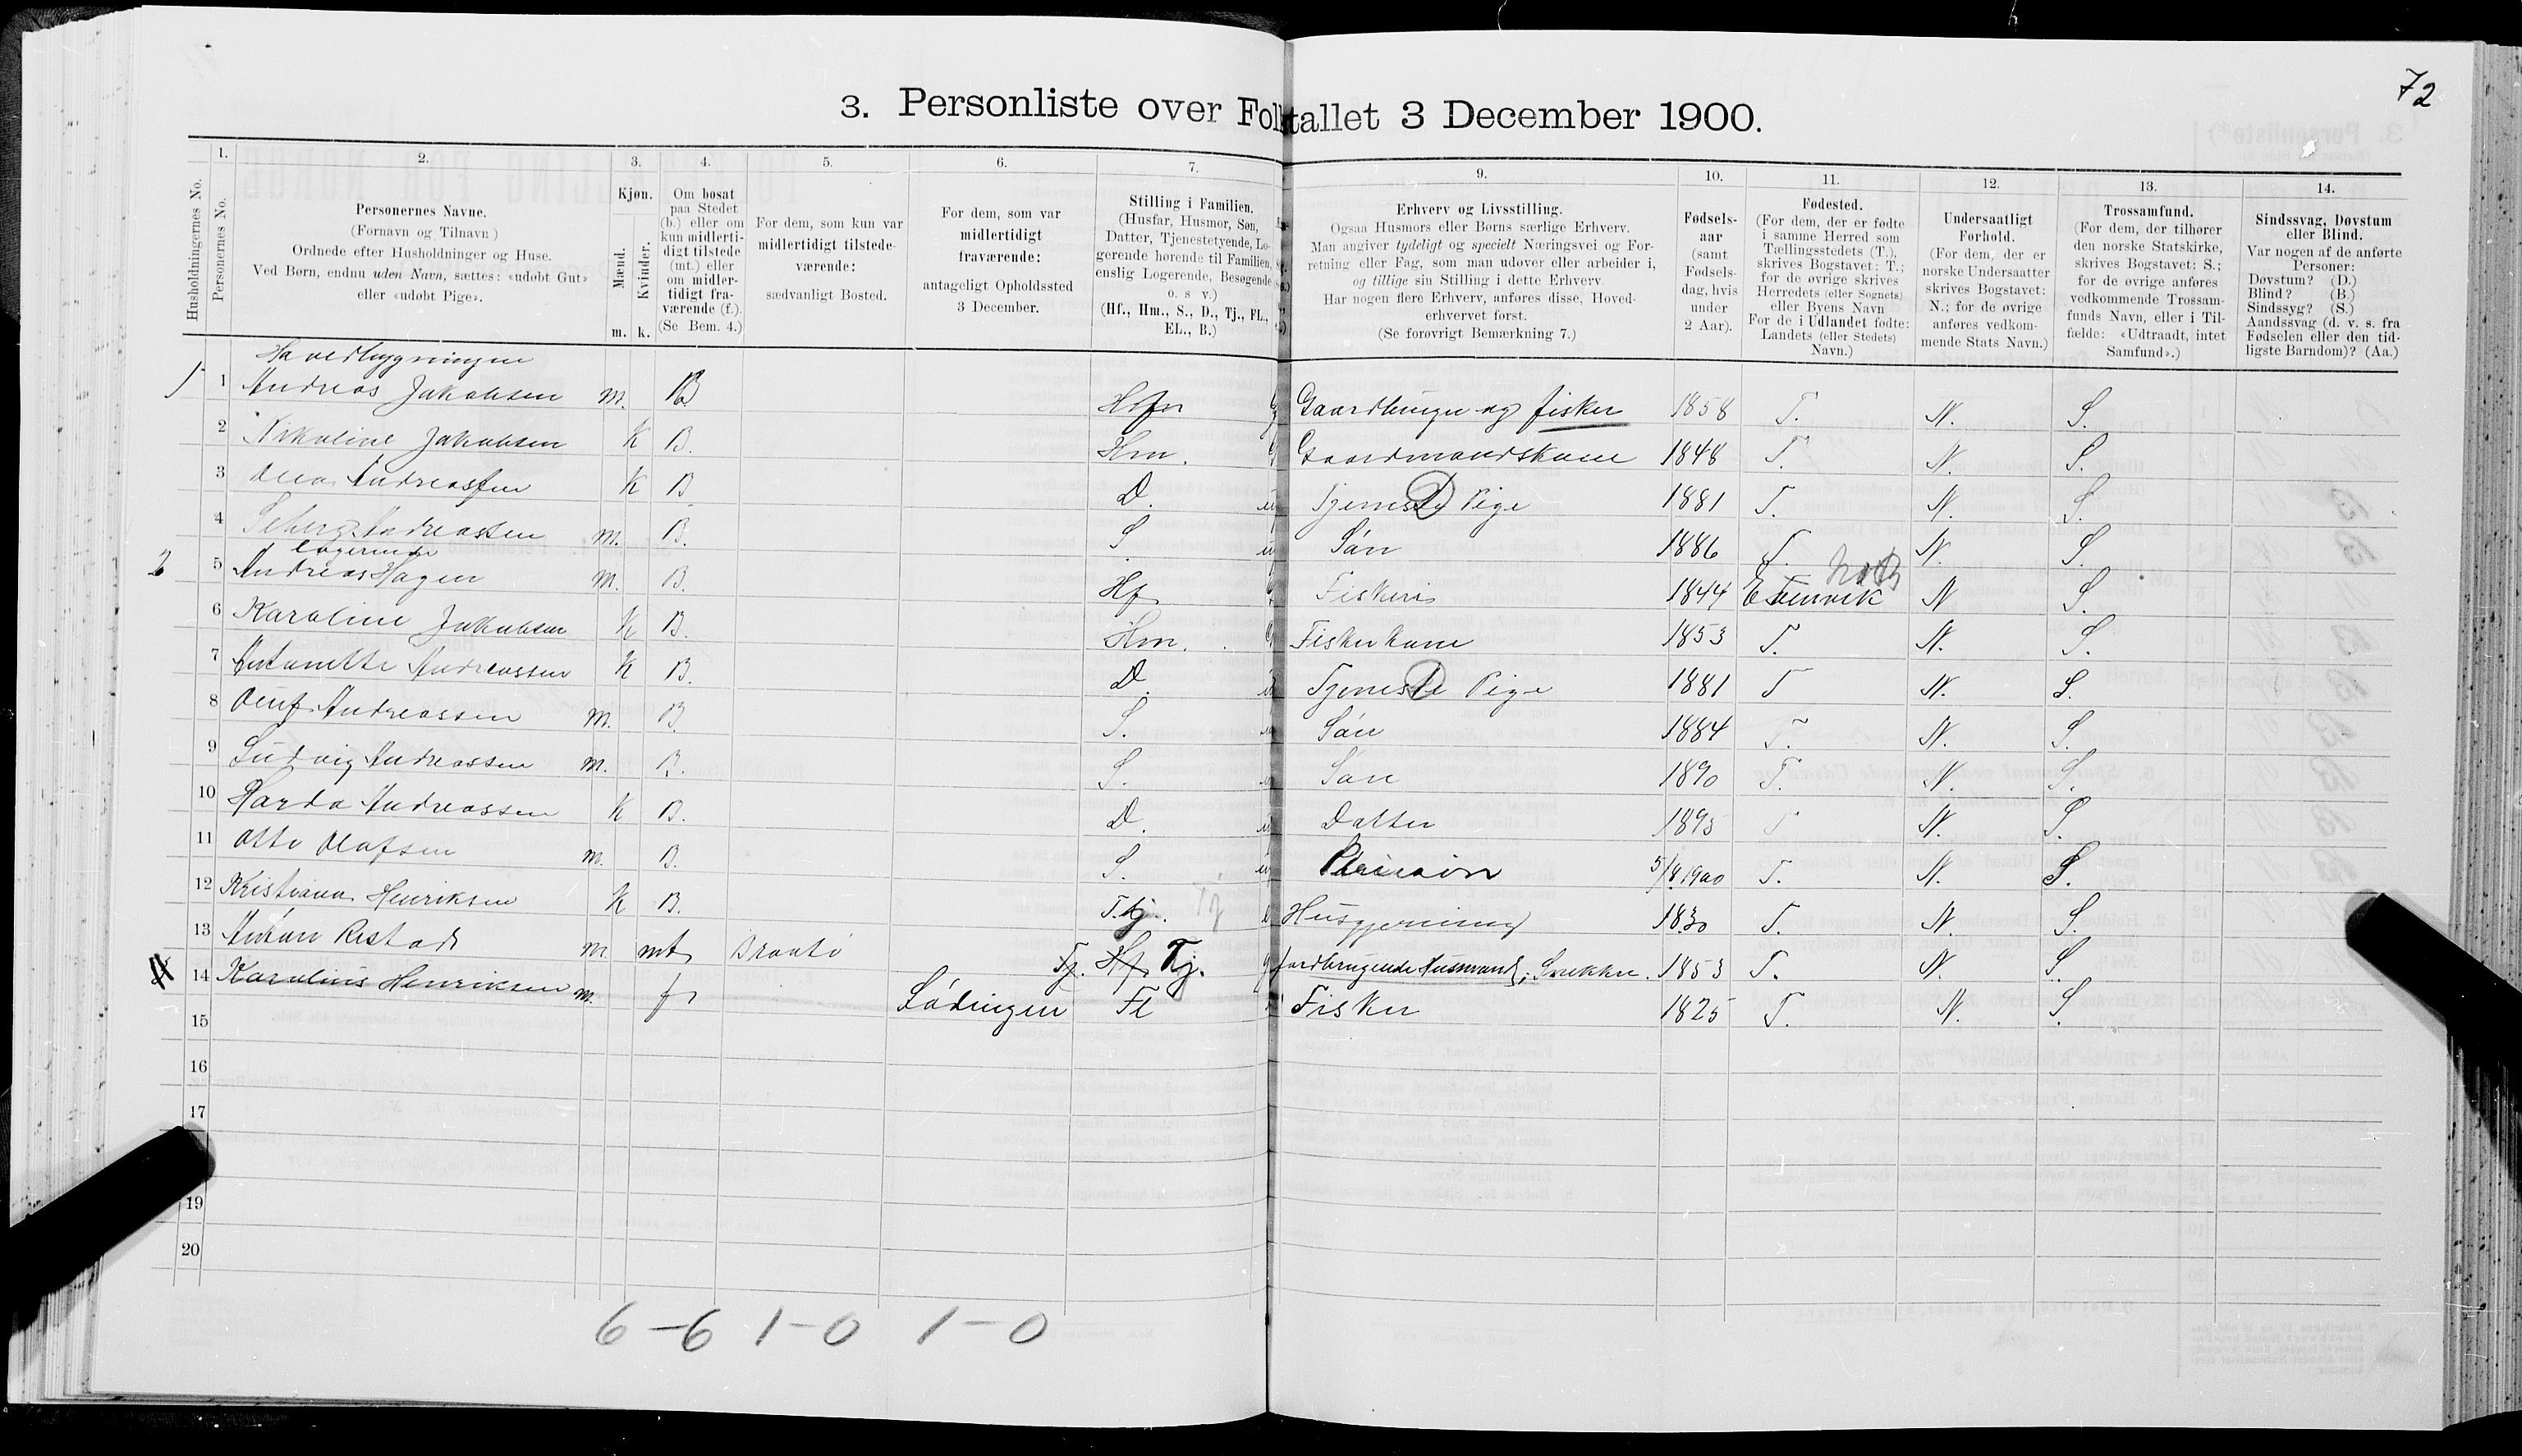 72
3. Personliste over Folketallet 3 December 1900.
1. 2. 3. 4. 5. 6. 7. 9. 10. 11. 12. 13. 14.
Husholdningernes No.
Personernes No.
Personernes Navne.
(Fornavn og Tilnavn)
Ordnede efter Husholdninger og Huse.
Ved Børn, endnu uden Navn, sættes: «udøbt Gut»
eller «udøbt Pige».
Kjøn.
Mænd.
Kvinder.
m. k.
Om bosat
paa Stedet
(b.) eller om
kun midlerti-
digt tilstede
(mt.) eller
om midler-
tidigt fra-
værende (f.).
(Se Bem. 4.)
For dem, som kun var
midlertidigt tilstede-
værende:
sædvanligt Bosted.
For dem, som var
midlertidigt
fraværende:
antageligt Opholdssted
3 December.
Stilling i Familien.
(Husfar, Husmor, Søn,
Datter, Tjenestetyende, Lo-
gerende hørende til Familien,
enslig Logerende, Besøgende
o. s v.)
(Hf., Hm., S., D., Tj., FL.,
EL., B.)
Erhverv og Livsstilling.
Ogsaa Husmors eller Børns særlige Erhverv.
Man angiver tydeligt og specielt Næringsvei og For-
retning eller Fag, som man udøver eller arbeider i,
og tillige sin Stilling i dette Erhverv.
Har nogen flere Erhverv, anføres disse, Hoved-
erhvervet først.
(Se forøvrigt Bemærkning 7.)
Fødsels-
aar
(samt
Fødsels-
dag, hvis
under
2 Aar).
Fødested.
(For dem, der er fødte
i samme Herred som
Tællingsstedets (T.),
skrives Bogstavet: T.;
for de øvrige skrives
Herredets (eller Sognets)
eller Byens Navn
For de i Udlandet fødte:
Landets (eller Stedets)
Navn.)
Undersaatligt
Forhold.
(For dem, der er
norske Undersaatter
skrives Bogstavet:
N.; for de øvrige
anføres vedkom-
mende Stats Navn.)
Trossamfund.
(For dem, der tilhører
den norske Statskirke,
skrives Bogstavet: S.;
for de øvrige anføres
vedkommende Trossam-
funds Navn, eller i Til-
fælde: «Udtraadt, intet
Samfund».)
Sindssvag, Døvstum
eller Blind.
Var nogen af de anførte
Personer:
Døvstum? (D.)
Blind? (B.)
Sindssyg? (S.)
Aandssvag (d. v. s. fra
Fødselen eller den tid-
ligste Barndom)? (Aa.)
Havedbygningen
1 1 Andreas Jakobsen m. B Hf Gaardbruger og fisker 1858 T. N. S.
2 Nikoline Jakobsen K B. Hm. Gaardmandskone 1848 T. N. S.
3 Andreassen K B D. Tjeneste Pige 1881 T. N. S.
4 Andreassen m. B. S. Søn 1886 T. N. S.
Logerende
2 5 Andreas Hagen m. B. Hf Fiskeri 1844 Evenvik N S.
6 Karoline Jakobsen K B. Hm. Fiskerkone 1853 T. N. S.
7 Antonette Andreassen K B. D. Tjeneste Pige 1881 T N. S.
8 Oluf Andreassen m. B. S. Søn 1884 T. N. S.
9 Ludvig Andreassen m. B. S. Søn 1890 T. N. S.
10 Harda Andreassen K B. D. Datter 1895 T N. S.
11 Otto Olafsen m. B. S. Pleiesøn 5/8 1900 T. N. S.
12 Kristiana Henriksen K B. Tj. Tj Husgjerning 1830 T. N. S.
13 Ristad m. mt Tj. Hf Tj. jordbrugende Husmand, Snekker. 1853 T. N. S.
14 Karolius Henriksen m. f Lødingen Fl Fisker 1825 T. N. S.
15
16
17
19
20
6 - 6 1 - 0 1 - 0